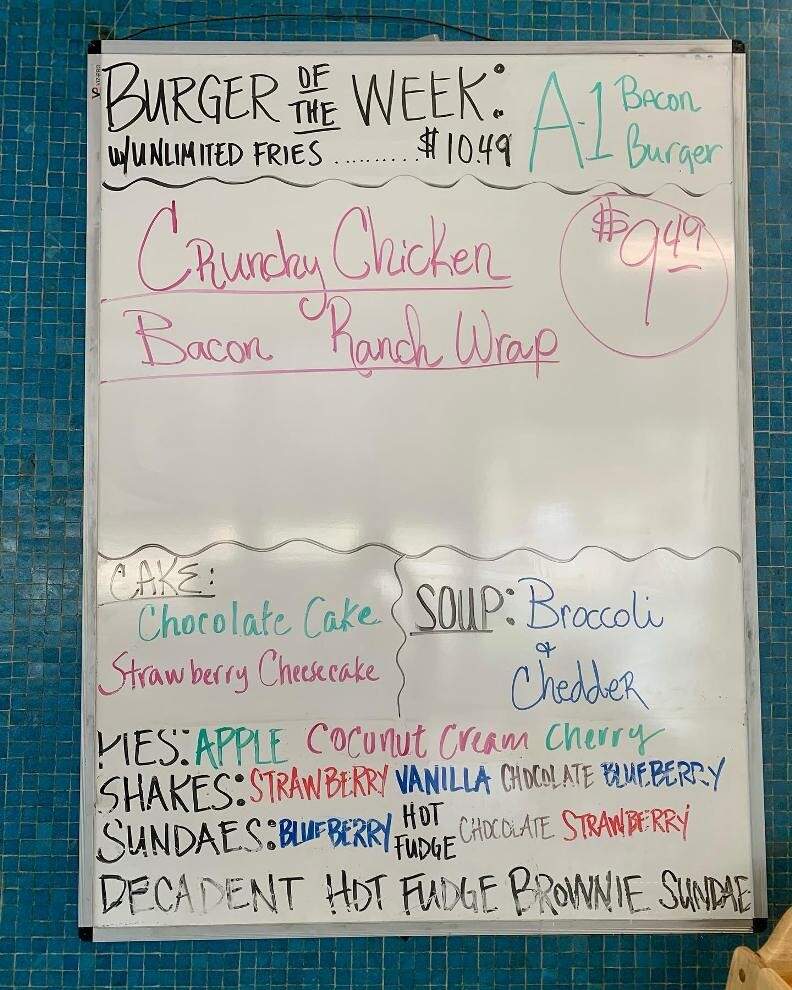 BURGER OF THE WEEK: A-1 Bacon Burger
W/UNLIMITED FRIES ......... $10.49
Crunchy Chicken $9.49
Bacon Ranch Wrap
CAKE:
Chocolate Cake
Strawberry Cheesecake
SOUP: Broccoli
&
Chedder
PIES: APPLE Coconut Cream Cherry
SHAKES: STRAWBERRY VANILLA CHOCOLATE BLUEBERRY
SUNDAES: BLUEBERRY HOT FUDGE CHOCOLATE STRAWBERRY
DECADENT HOT FUDGE BROWNIE SUNDAE